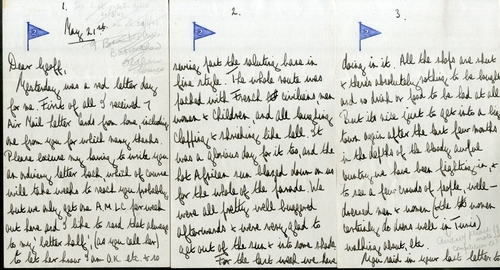 1.
May 21st.
Dear Geoff,
Yesterday was a red letter day
for me. First of all I received 7
Air Mail letter cards from home including
one from you for which many thanks.
Please excuse my having to write you
an ordinary letter back which of course
will take weeks to reach you probably
but we only get one A.M.L.C. per week
out here and I like to send that always
to my 'better half', (as you all her)
to let her know I am O.K. etc. & so
2.
swing past the saluting base in
fine style. The whole route was
packed with French civilians, men
women & children, and all laughing
clapping & shrieking like hell. It
was a glorious day for it too, and the
hot African sun blazed down on us
for the whole of the parade. We
were all pretty well buggered
afterwards & were very glad to
get out of the sun & into some shade.
For the last week we have
3.
doing in it. All the shops are shut
& there's absolutely nothing to be bought
and no drink or food to be had at all.
But its nice just to get into a big
town again after the last few months
in the depths of the bloody awful
country we have been fighting in, &
to see a few crowds of people, well-
dressed men & women (the women
certainly do dress well in Tunis)
walking about, etc.
You said in your last letter